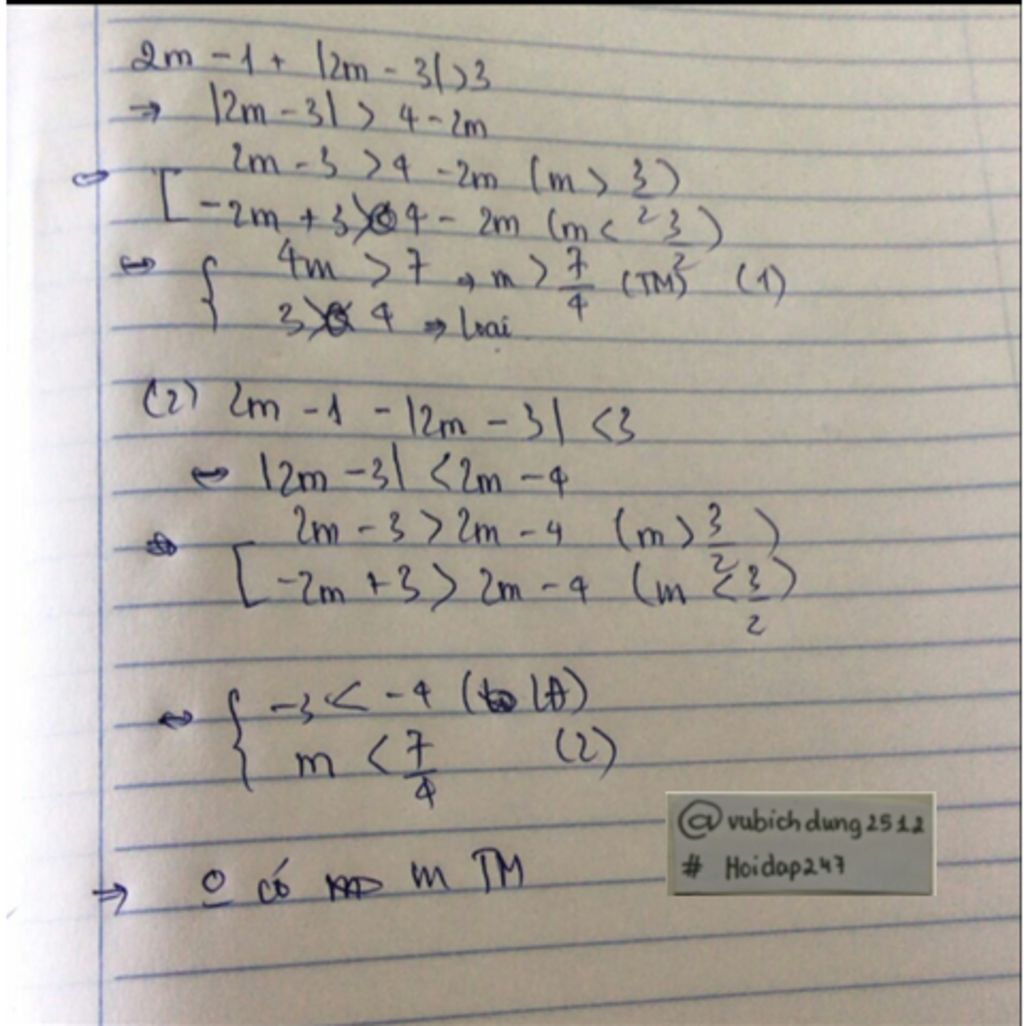 2m - 1 + |2m - 3| > 3
→ |2m - 3| > 4 - 2m
⇔ [ 2m - 3 > 4 - 2m (m > 3/2)
-2m + 3 > 4 - 2m (m < 3/2)
⇔ { 4m > 7 → m > 7/4 (TM) (1)
3 > 4 ⇒ loại
(2) 2m - 1 - |2m - 3| < 3
⇔ |2m - 3| < 2m - 4
⇔ [ 2m - 3 > 2m - 4 (m > 3/2)
-2m + 3 > 2m - 4 (m < 3/2)
⇔ { -3 < -4 (LĐ)
m < 7/4 (2)
⇒ có m TM
@vubichdung2512
# Hoidap247